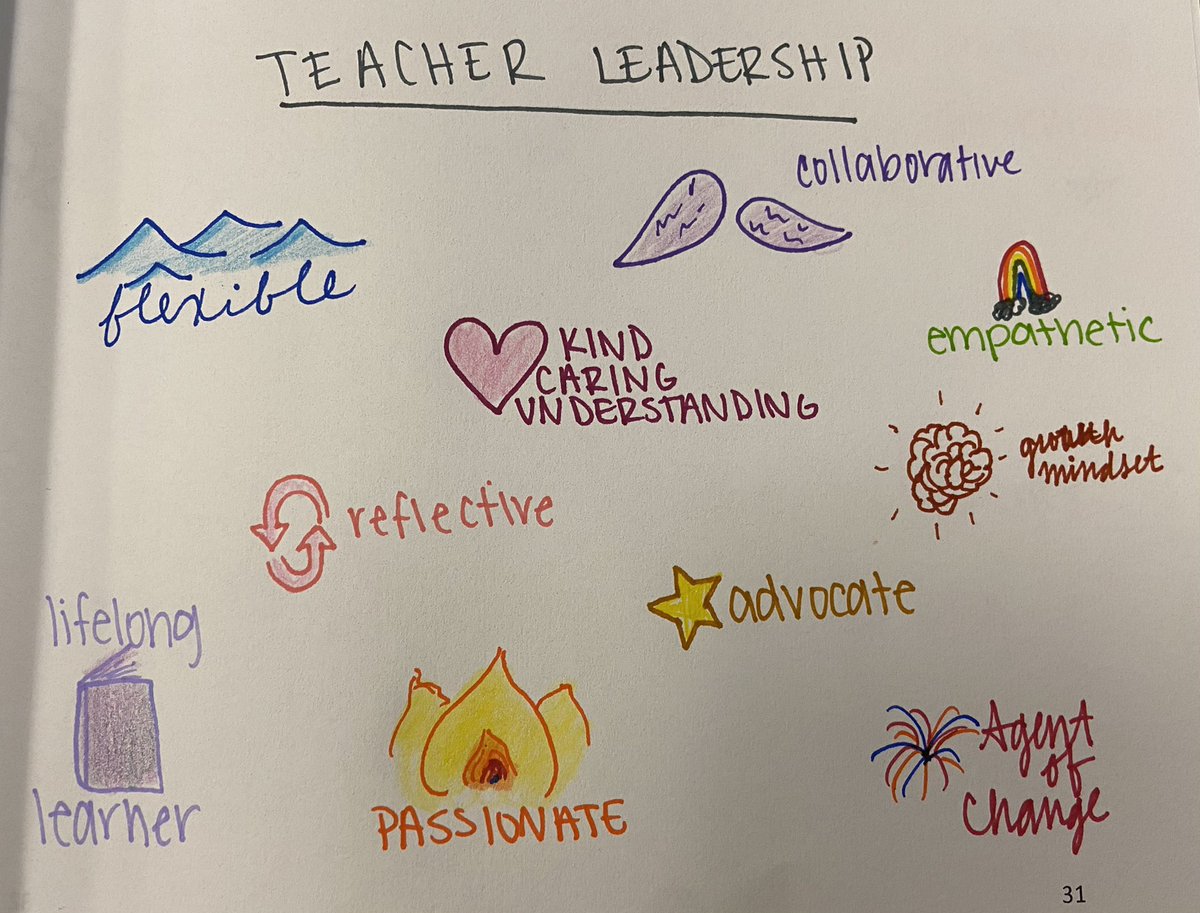 TEACHER LEADERSHIP
collaborative
flexible
empathetic
KIND
CARING
UNDERSTANDING
growth
mindset
reflective
advocate
lifelong
learner
PASSIONATE
Agent
of
Change
31